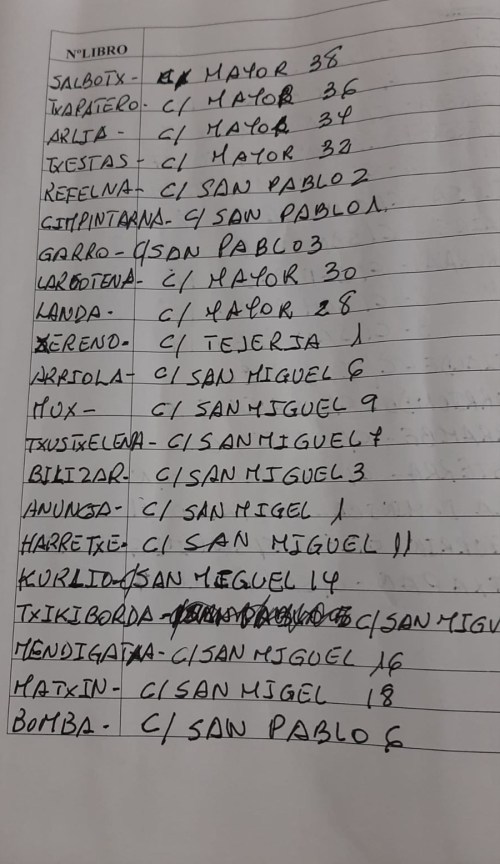 NºLIBRO
SALBOTX- C/ MAYOR 38
TXAPATERO- C/ MAYOR 36
ARLIA - C/ MAYOR 34
TXESTAS - C/ MAYOR 32
REFELNA- C/ SAN PABLO 2
CIMPINTARNA- C/ SAN PABLO 1.
GARRO- C/SAN PABLO 3
LARGOTENA- C/ MAYOR 30
LANDA- C/ MAYOR 28
XERENO- C/ TEJERIA 1
ARRIOLA- C/ SAN MIGUEL 6
MUX- C/ SAN MIGUEL 9
TXUSTXELENA- C/SAN MIGUEL 7
BILIZAR- C/SAN MIGUEL 3
ANUNCIA- C/ SAN MIGEL 1
HARRETXE- C/ SAN MIGUEL 11
KURLIO-C/SAN MIGUEL 14
TXIKIBORDA- C/SAN MIGU
MENDIGATXA- C/SAN MIGUEL 16
MATXIN- C/SAN MIGEL 18
BOMBA- C/ SAN PABLO 6